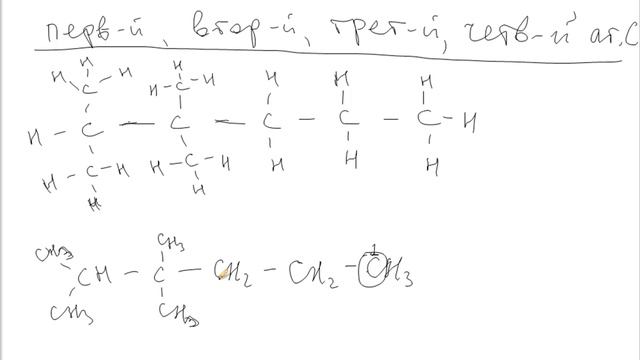 перв-й, втор-й, трет-й, четв-й ат. C
H
H C H H C H H H H
H – C — C — C – C – C – H
H – C – H H – C – H H H H
H H
CH3 CH3
CH – C – CH2 – CH2 – CH3
CH3 CH3